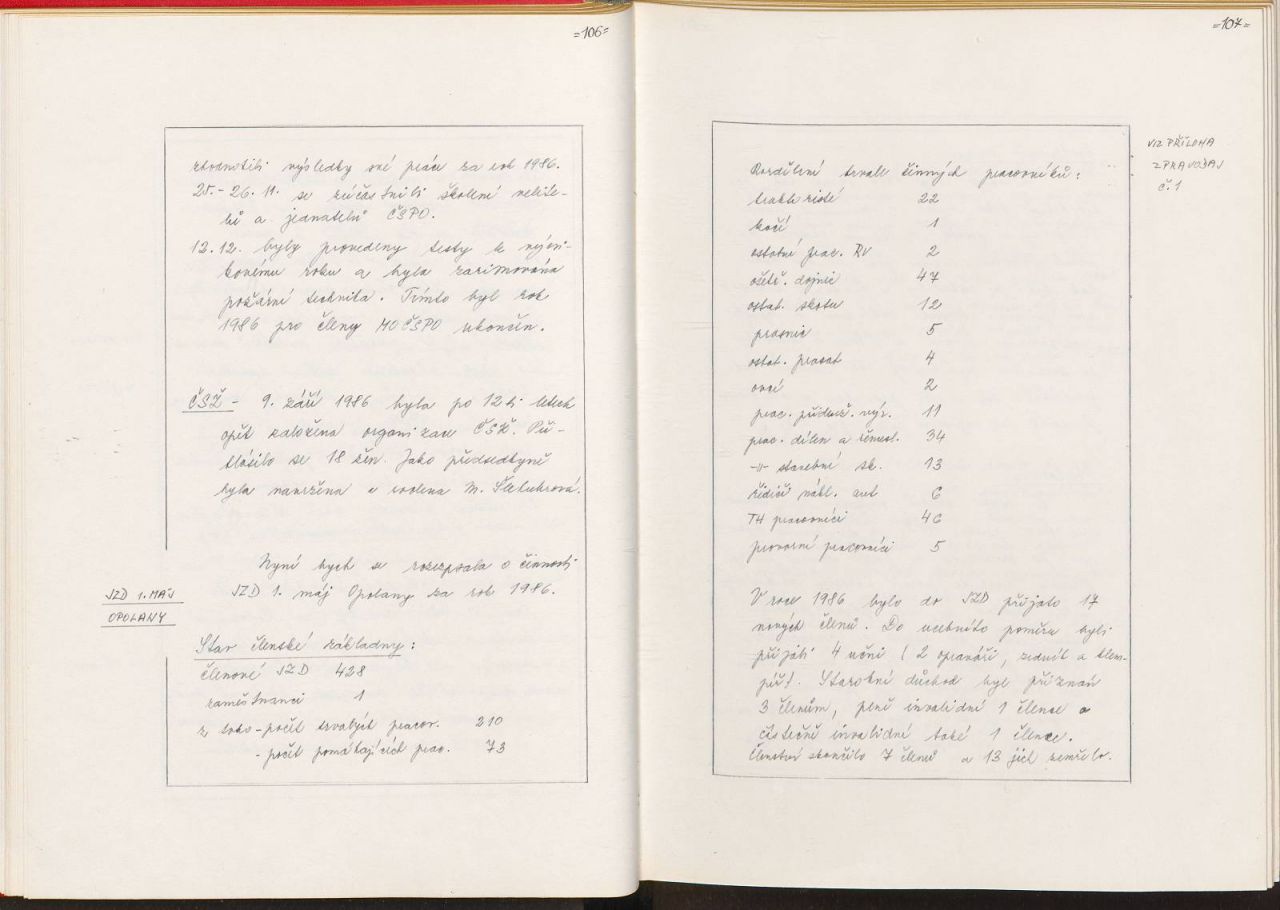 =106=
zhodnotili výsledky své práce za rok 1986.
25.-26.11. se zúčastnili školení velite-
lů a jednatelů ČSPO.
12.12. byly provedeny testy k výcvi-
kovému roku a byla zazimována
požární technika. Tímto byl rok
1986 pro členy MOČSPO ukončen.
ČSŽ - 9. září 1986 byla po 12ti letech
opět založena organizace ČSŽ. Při-
hlásilo se 18 žen. Jako předsedkyně
byla navržena a zvolena M.
Nyní bych se rozepsala o činnosti
JZD 1. MÁJ
OPOLANY
JZD 1. máj Opolany za rok 1986.
Stav členské základny:
členové JZD 428
zaměstnanci 1
z toho - počet trvalých pracov. 210
- počet pomáhajících prac. 73
=107=
VIZ PŘÍLOHA
ZPRAVODAJ
č.1
Rozdělení trvale činných pracovníků:
traktoristé 22
kočí 1
ostatní prac. RV 2
ošetř. dojnic 47
ostat. skotu 12
prasnic 5
ostat. prasat 4
ovcí 2
prac. přidruž. výr. 11
prac. dílen a řemesl. 34
-"- stavební sk. 13
řidiči nákl. aut 6
TH pracovníci 46
provozní pracovníci 5
V roce 1986 bylo do JZD přijato 17
nových členů. Do učebního poměru byli
přijati 4 učni (2 opraváři, zedník a klem-
píř). Starobní důchod byl přiznán
3 členům, plně invalidní 1 člence a
částečně invalidní také 1 člence.
Členství skončilo 7 členů a 13 jich zemřelo.